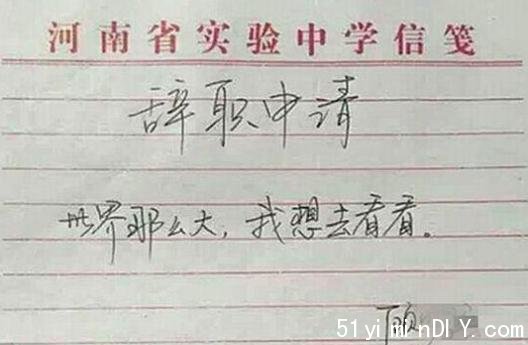 河南省实验中学信笺
辞职申请
世界那么大，我想去看看。
顾
51yiminDIY.com